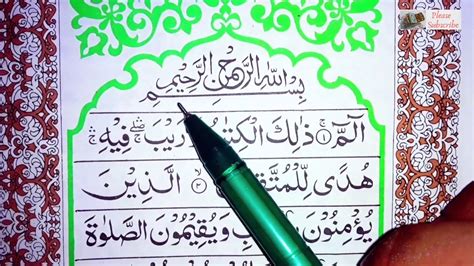 Please
Subscribe
بِسْمِ اللّٰهِ الرَّحْمٰنِ الرَّحِيْمِ
الٓمّٓ ۚ ۱ ذٰلِكَ رَيْبَ ۛ فِيْهِ ۛ
هُدًى ۲ الَّذِيْنَ
يُؤْمِنُوْنَ وَيُقِيْمُوْنَ الصَّلٰوةَ